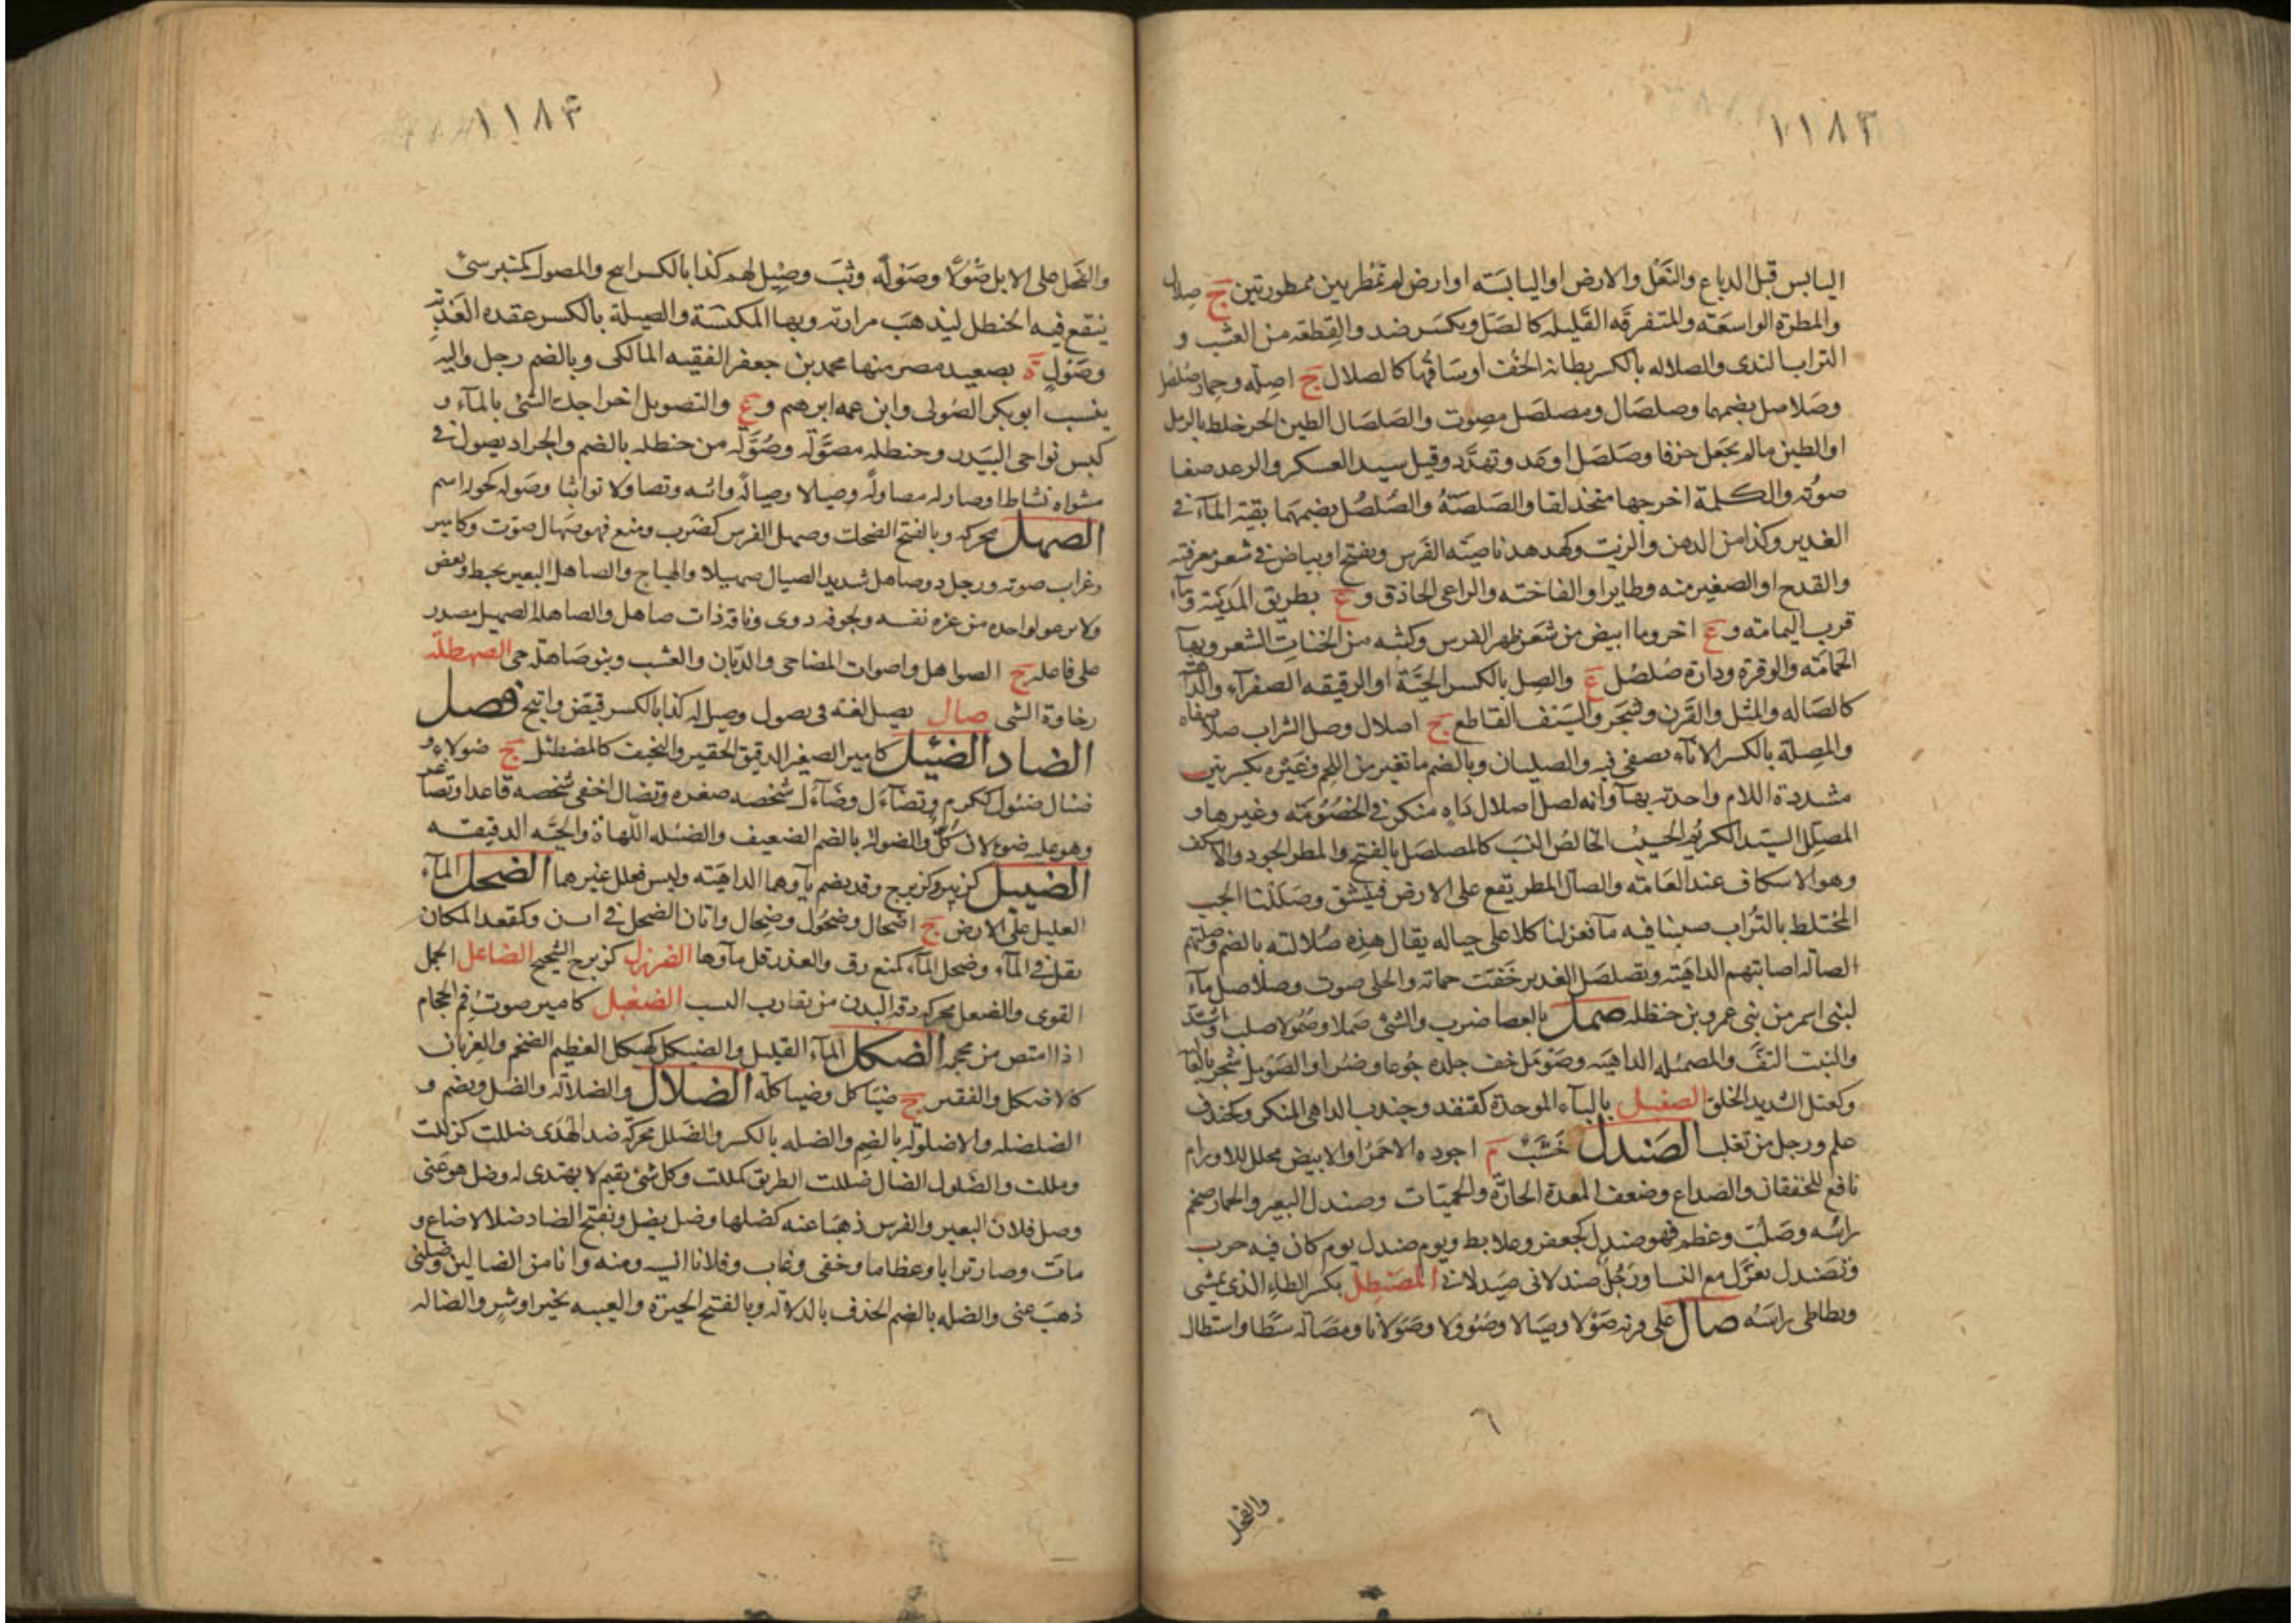 ١١٨٢
اليابس قبل الدباغ والنعل والارض او اليابسته او ارض لم تمطر بين ممطورتين ج صلال
والمطرة الواسعته والمتفرقه القليله كالصَل ويكسَر ضد والقطعه من العشب و
التراب الندى والصلاله بالكسر بطانة الخف او ساقها كالصلال ج اصله وحمار صلصل
وصَلاصل بضمهما وصلصَال ومصلصَل مصوت والصَلصَال الطين الحر خلط بالرمل
او الطين مالم يجعل خزفا وصَلصَل اوعد وتهدَّد وقيل سيد العسكر والرعد صفا
صوته والكلمة اخرجها متحذلقا والصَلصَةُ والصُلصُل بضمهما بقية المآء فى
الغدير وكذا من الدهن والزيت وكهدهد ناصيته الفَرس ويفتح او بياض فى شعر معرفته
والقدح او الصغير منه وطاير او الفاخته والراعى الحاذق و ع بطريق المدينة ومآء
قرب اليمامته و ع اخر وما ابيض من شعر ظهر الفرس وكثبه من الخنات الشعر وبهآ
الحمامَته والوقرة ودارة صُلصُل ع والصِل بالكسر الحيَّة او الرقيقه الصفرآء والداهيه
كالصَاله والمثل والقَرن وشجر والسَيف القاطع ج اصلال وصل الشراب صلا صفاه
والمِصلة بالكسر الانآء يصفى فيه والصليان وبالضم ما تغير من اللحم وغيره بكسرتين
مشددة اللام واحدته بهآ وانه لصل اصلال دَاه منكر فى الخصُومَته وغيرها و
المصلل السَيد الكريم الحسيب الخالص النسب كالمصلصَل بالفتح والمطر الجود والاسكف
وهو الاسكاف عند العَامته والصآل المطر يقع على الارض فينشق وصَلَلنا الحب
المختلط بالتُراب صببنا فيه مآ فعزلنا كلا على حياله يقال هذه صُلالته بالضم وصلتهم
الصآله اصابتهم الداهَيته وتصلصَل الغدير خَفت حماته والحلى صوت وصلاصل مآء
لبنى اسمر من بنى عمرو بن حنظله صمل بالعصا ضرب والشئ صَملا وصُمُولا صلب واشتد
والنبت التفَّ والمصمئله الداهيَه وصَومَل خف جلده جُوعا وضُرا والصَوَمل شجر بالعا
وكعتل الشديد الخلق الصغبل بالبآء الموحدة كقنفذ وجندب الداهى المنكر وكخندف
علم ورجل من تغلب الصَندل خَشَبٌ م اجوده الاحمَر او الابيض محلل للاورام
نافع للخفقان والصداع وضعف المعدة الحارّة والحميّات وصندل البعير والحمار ضخم
راسه وصَلُبَ وعظم فهو صندل كجعفر وعلابط ويوم صندل يوم كان فيه حرب
وتصَندل تغزَّل مع النسا ورَجُل صندلانى صيَدلانى المصَنطِل بكسر الطاء الذى يمشى
ويطاطى راسَه صال على قرنه صَوْلا وصيَالا وصُؤولا وصَوَلانا ومصَاله سَطا واستطال
٦
والفحل
١١٨٣
والفَحل على الابل صَوْلا وصَوْلَه وثبَ وصِيل لهم كذا بالكسر اتيح والمصول كمنبر شئ
ينقع فيه الحنطل ليذهَبَ مرارته وبها المكنسَة والصيلة بالكسر عقدة العَذبة
وصَوْل ة بصعيد مصر منها محمد بن جعفر الفقيه المآلكى وبالضم رجل واليه
ينسب ابو بكر الصُولى وابن عمه ابرهيم و ع والتصويل اخراجك الشئ بالمآء و
كبس نواحى البَيدر وحنطله مصَوَّلة وصُوَّلة من حنطله بالضم والجراد يصول فى
مشواه نشاطا وصاوله مصاولة وصيالا وصيالة واثبه وتصاولا تواثبا وصوله كحوله اسم
الصهل محركه وبالفتح الضحك وصهل الفرس كضَرب ومنع فهو صَهال صوّت وكامير
وغراب صوته ورجل ذو صاهل شديد الصيال صهيلا والهياج والصاهل البعير يخبط ويعض
ولا يرغو لواحده من عزة نفسه ولجوفه دوى وناقة ذات صاهل والصاهلة الصهيل مصدر
على فاعله ج الصواهل واصوات المضاحى والذبان والعشب وبنو صَاهلة حى الصهطلة
رخاوة الشى صال يصيل لغة فى يصول وصيل له كذا بالكسر قيّض واتيح فصل
الضاد الضئيل كامير الصغير الدقيق الحقير والنحيف كالمضطئل ج ضولاء و
ضئال ضئول ككرم وتضآءَل وضآءَل شخصه صغره وتضآل اخفى شخصه قاعدا وتصآغر
وهو عليه ضوءلان كُلٌّ والضولة بالضم الضعيف والضئله اللهاة والحيَّه الدقيقه
الضئبل كزئبر وكزبرج وقد يضم بآوهما الداهيَته وليس فعلل غيرهما الضحل المآء
القليل على الارض ج اضحال وضحُول وضِحال واتان الضحل فى ا ت ن وكمقعد المكان
يقل فى المآء وضحل المآء كمنع رق والغدر قل مآوها الضرزل كزبرج الشحيح الضاعل الجمل
القوى والضعل محركه دقة البدن من تقارب النسب الضغيل كامير صوتُ فم الحجام
اذا امتص من محجمه الضكل المآء القليل والضيكل كهيكل العظيم الضخم والعريان
كالاضكل والفقير ج ضيَاكل وضياكلة الضلال والضلالة والضل ويضم و
الضلضله والاضلولة بالضم والضله بالكسر والضَلل محركة ضد الهُدى ضللت كزللت
ومللت والضَلول الضال ضللت الطريق كمللت وكل شئ يقيم لا يهتدى له وضل هو عنى
وضل فلان البعير والفرس ذهَبا عنه كضلها وضل يضل وتفتح الضاد ضلالا ضاع و
ماتَ وصار ترابا وعظاما وخفى وغاب وفلانا انسيه ومنه وانا من الضالين وضلنى
ذهبَ عنى والضله بالضم الحذف بالدلالة وبالفتح الحيرَة والغيبه بخير او شر والضاله